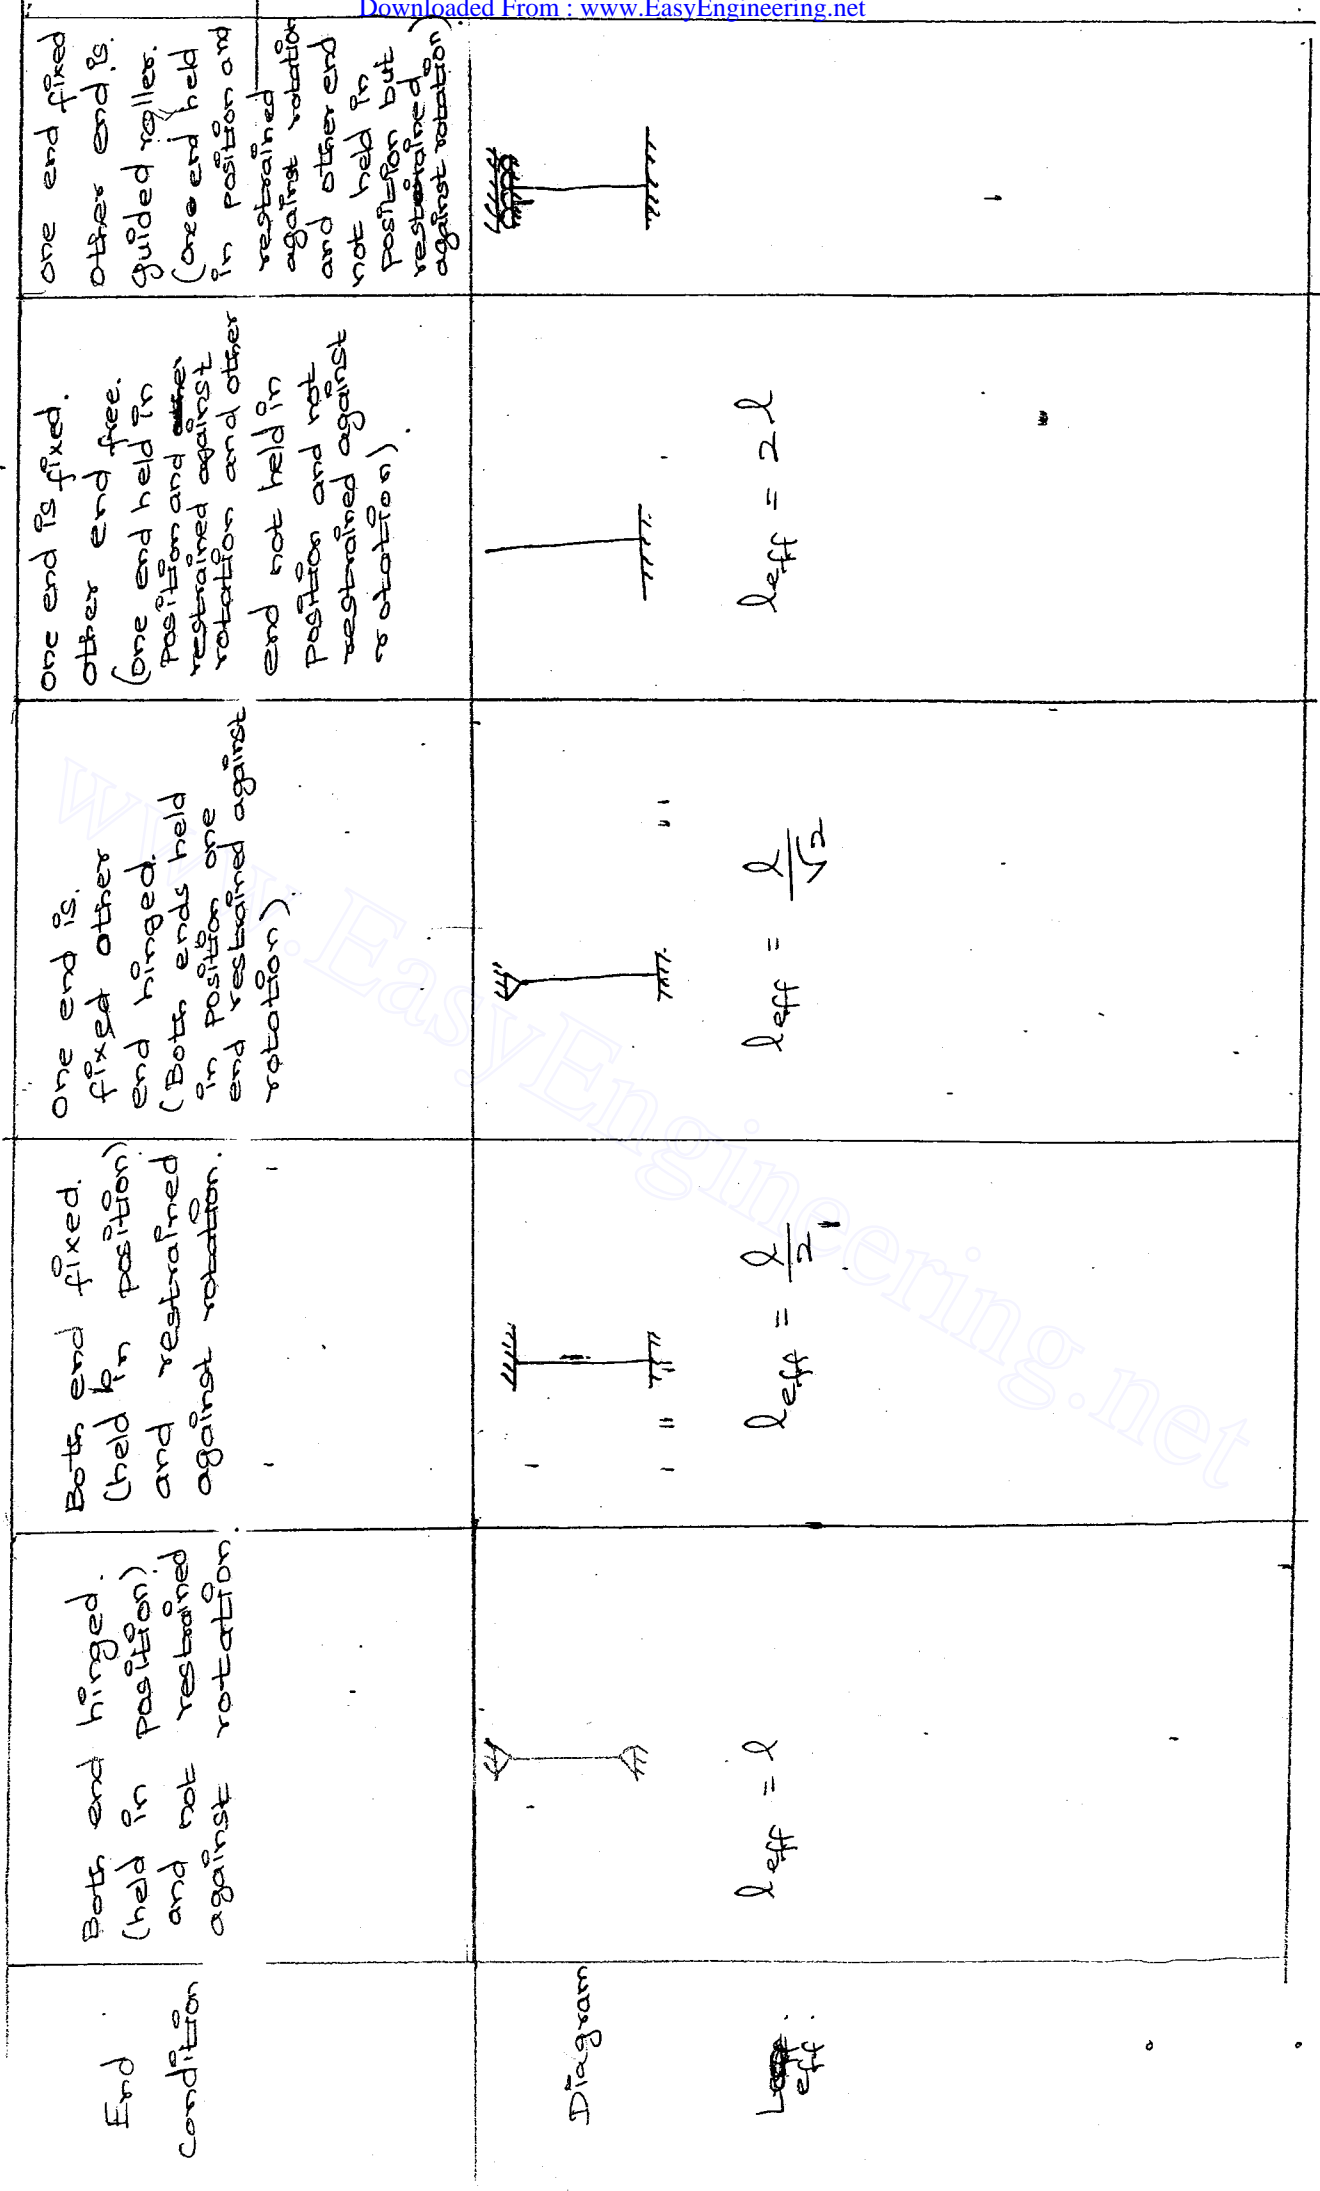 Downloaded From : www.EasyEngineering.net
End
condition
Both end hinged.
(held in position)
and not restrained
against rotation.
Both end fixed.
(held in position)
and restrained
against rotation.
one end is.
fixed other
end hinged.
(Both ends held
in position one
end restrained against
rotation).
one end is fixed.
other end free.
(one end held in
position and
restrained against
rotation and other
end not held in
position and not
restrained against
rotation).
one end fixed
other end is.
guided roller.
(one end held
in position and
restrained
against rotation
and other end
not held in
position but
restrained
against rotation).
Diagram
Leff.
eff
leff = l
leff = l/2
leff = l/√2
leff = 2l
www.EasyEngineering.net